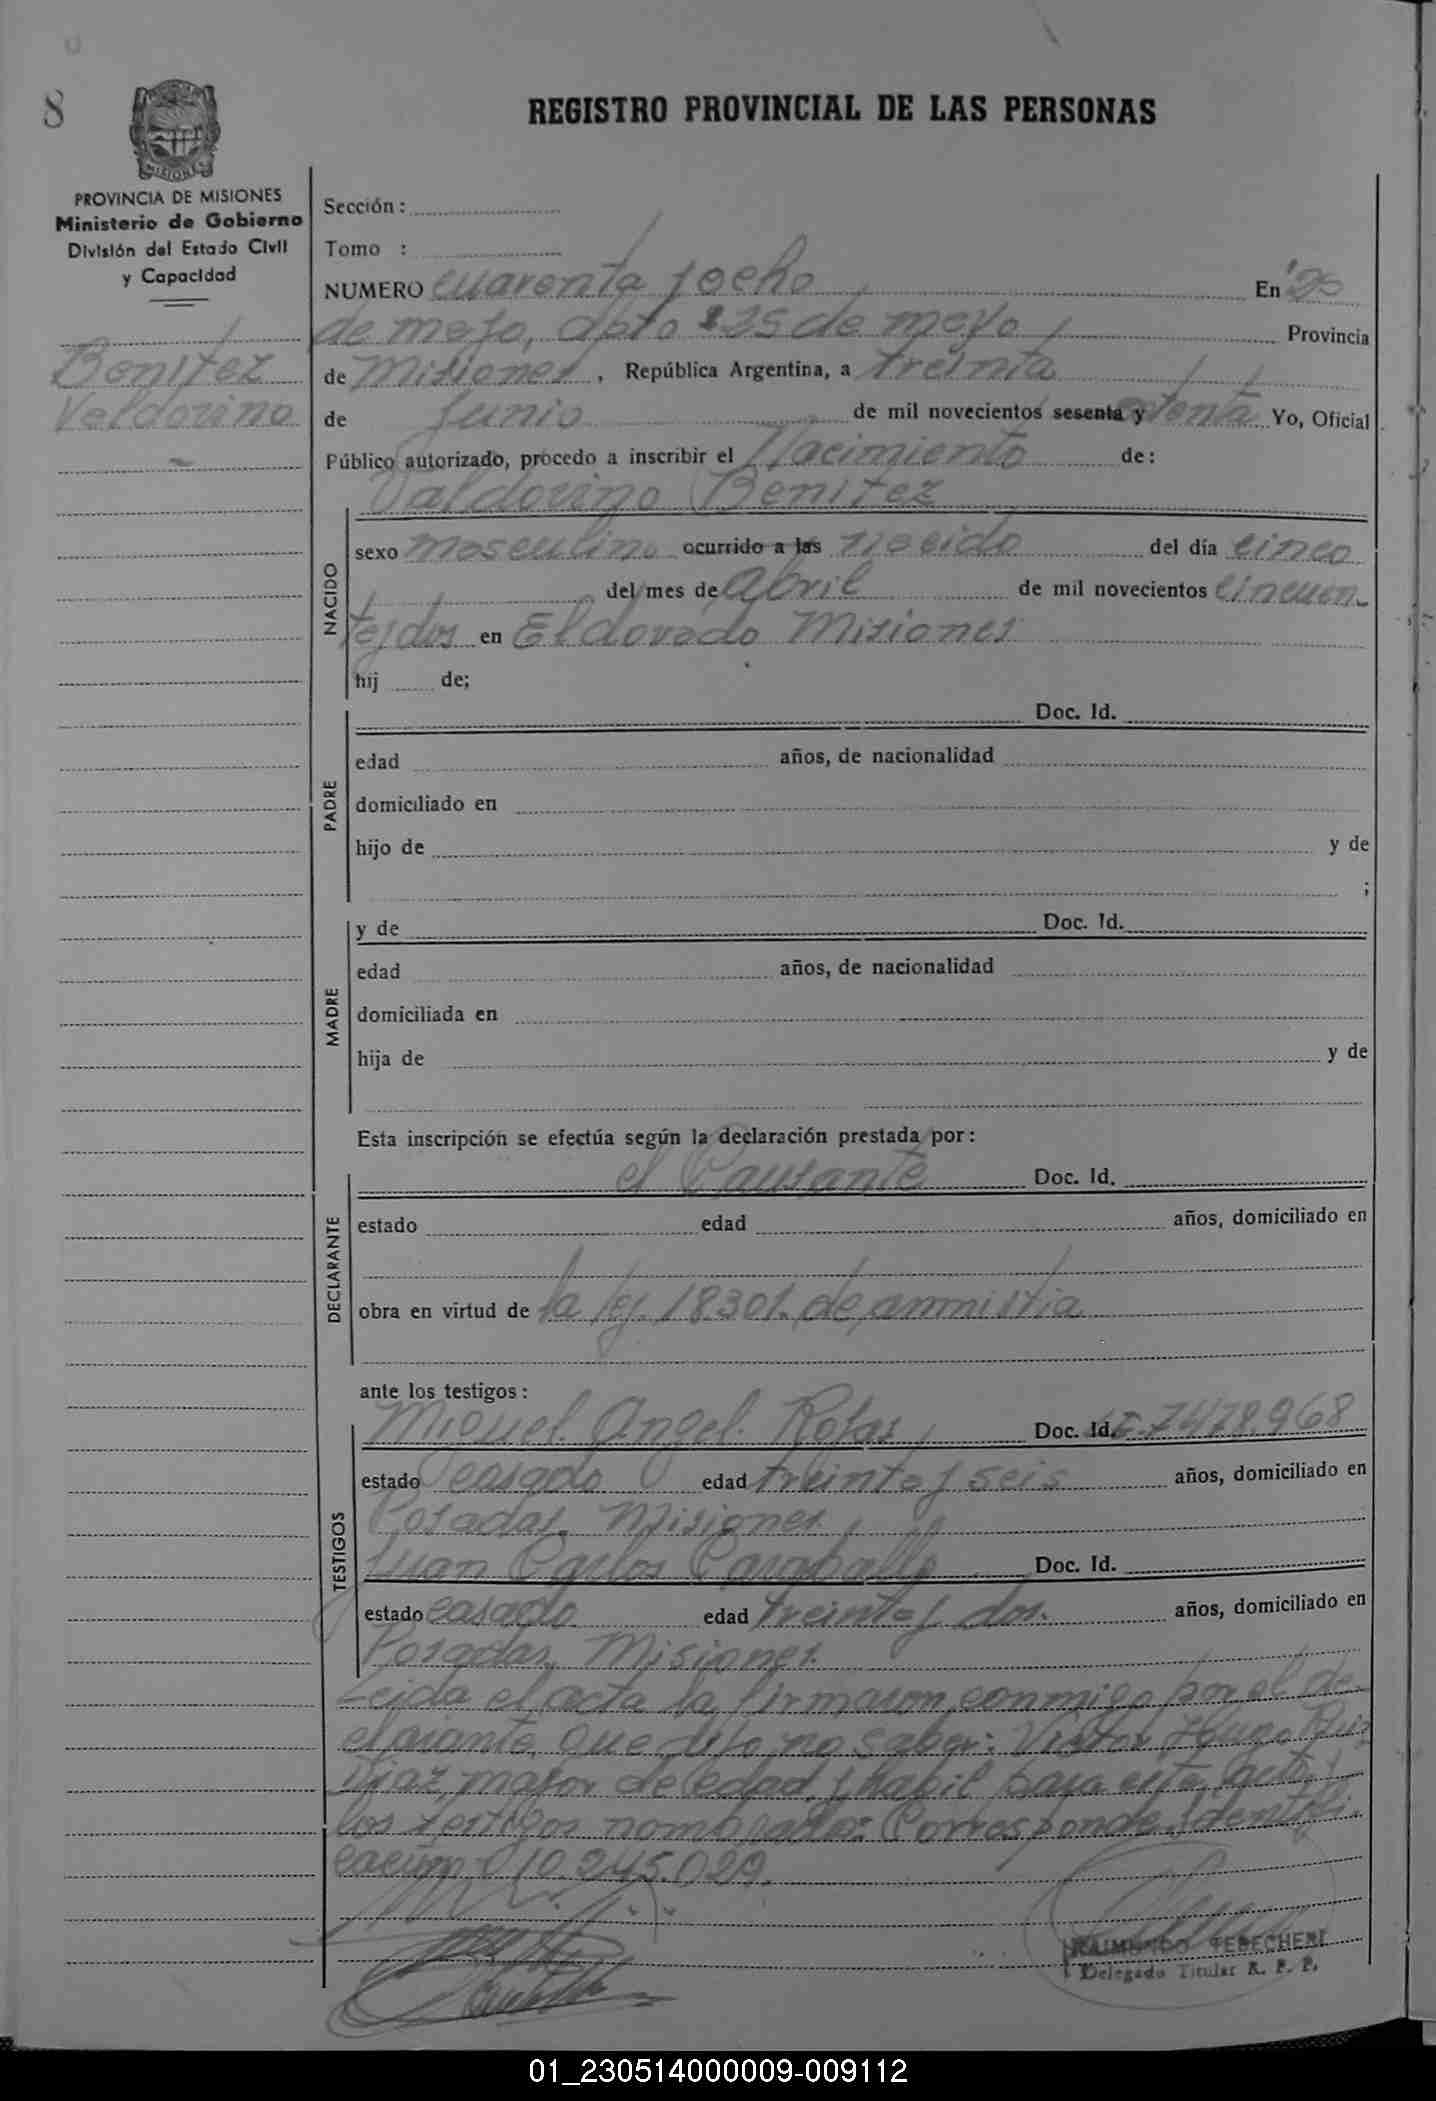 8
REGISTRO PROVINCIAL DE LAS PERSONAS
MISIONES
PROVINCIA DE MISIONES
Ministerio de Gobierno
División del Estado Civil
y Capacidad
Benitez
Valdovino
Sección:
Tomo :
NUMERO cuarenta y ocho En 25
de mayo, dpto 25 de mayo Provincia
de Misiones, República Argentina, a treinta
de Junio de mil novecientos sesenta y setenta Yo, Oficial
Público autorizado, procedo a inscribir el Nacimiento de:
Valdovino Benitez
NACIDO
sexo masculino ocurrido a las nacido del día cinco
del mes de Abril de mil novecientos cincuen-
ta y dos en Eldorado Misiones
hij de;
PADRE
Doc. Id.
edad años, de nacionalidad
domiciliado en
hijo de y de
;
MADRE
y de Doc. Id.
edad años, de nacionalidad
domiciliada en
hija de y de
Esta inscripción se efectúa según la declaración prestada por:
DECLARANTE
el Causante Doc. Id.
estado edad años, domiciliado en
obra en virtud de la ley. 18301. de amnistia
ante los testigos:
TESTIGOS
Miguel Angel Rojas Doc. Id. 7478.968
estado casado edad treinta y seis años, domiciliado en
Posadas, Misiones
Juan Carlos Caraballo Doc. Id.
estado casado edad treinta y dos. años, domiciliado en
Posadas, Misiones
Leida el acta la firmaron conmigo por el de-
clarante que dijo no saber: Victor Hugo Ruiz
Diaz mayor de edad y habil para este acto y
los testigos nombrados: Corresponde Identifi-
cacion 10.245.029.
RAIMUNDO TEBECHERI
Delegado Titular R. P. P.
01_230514000009-009112